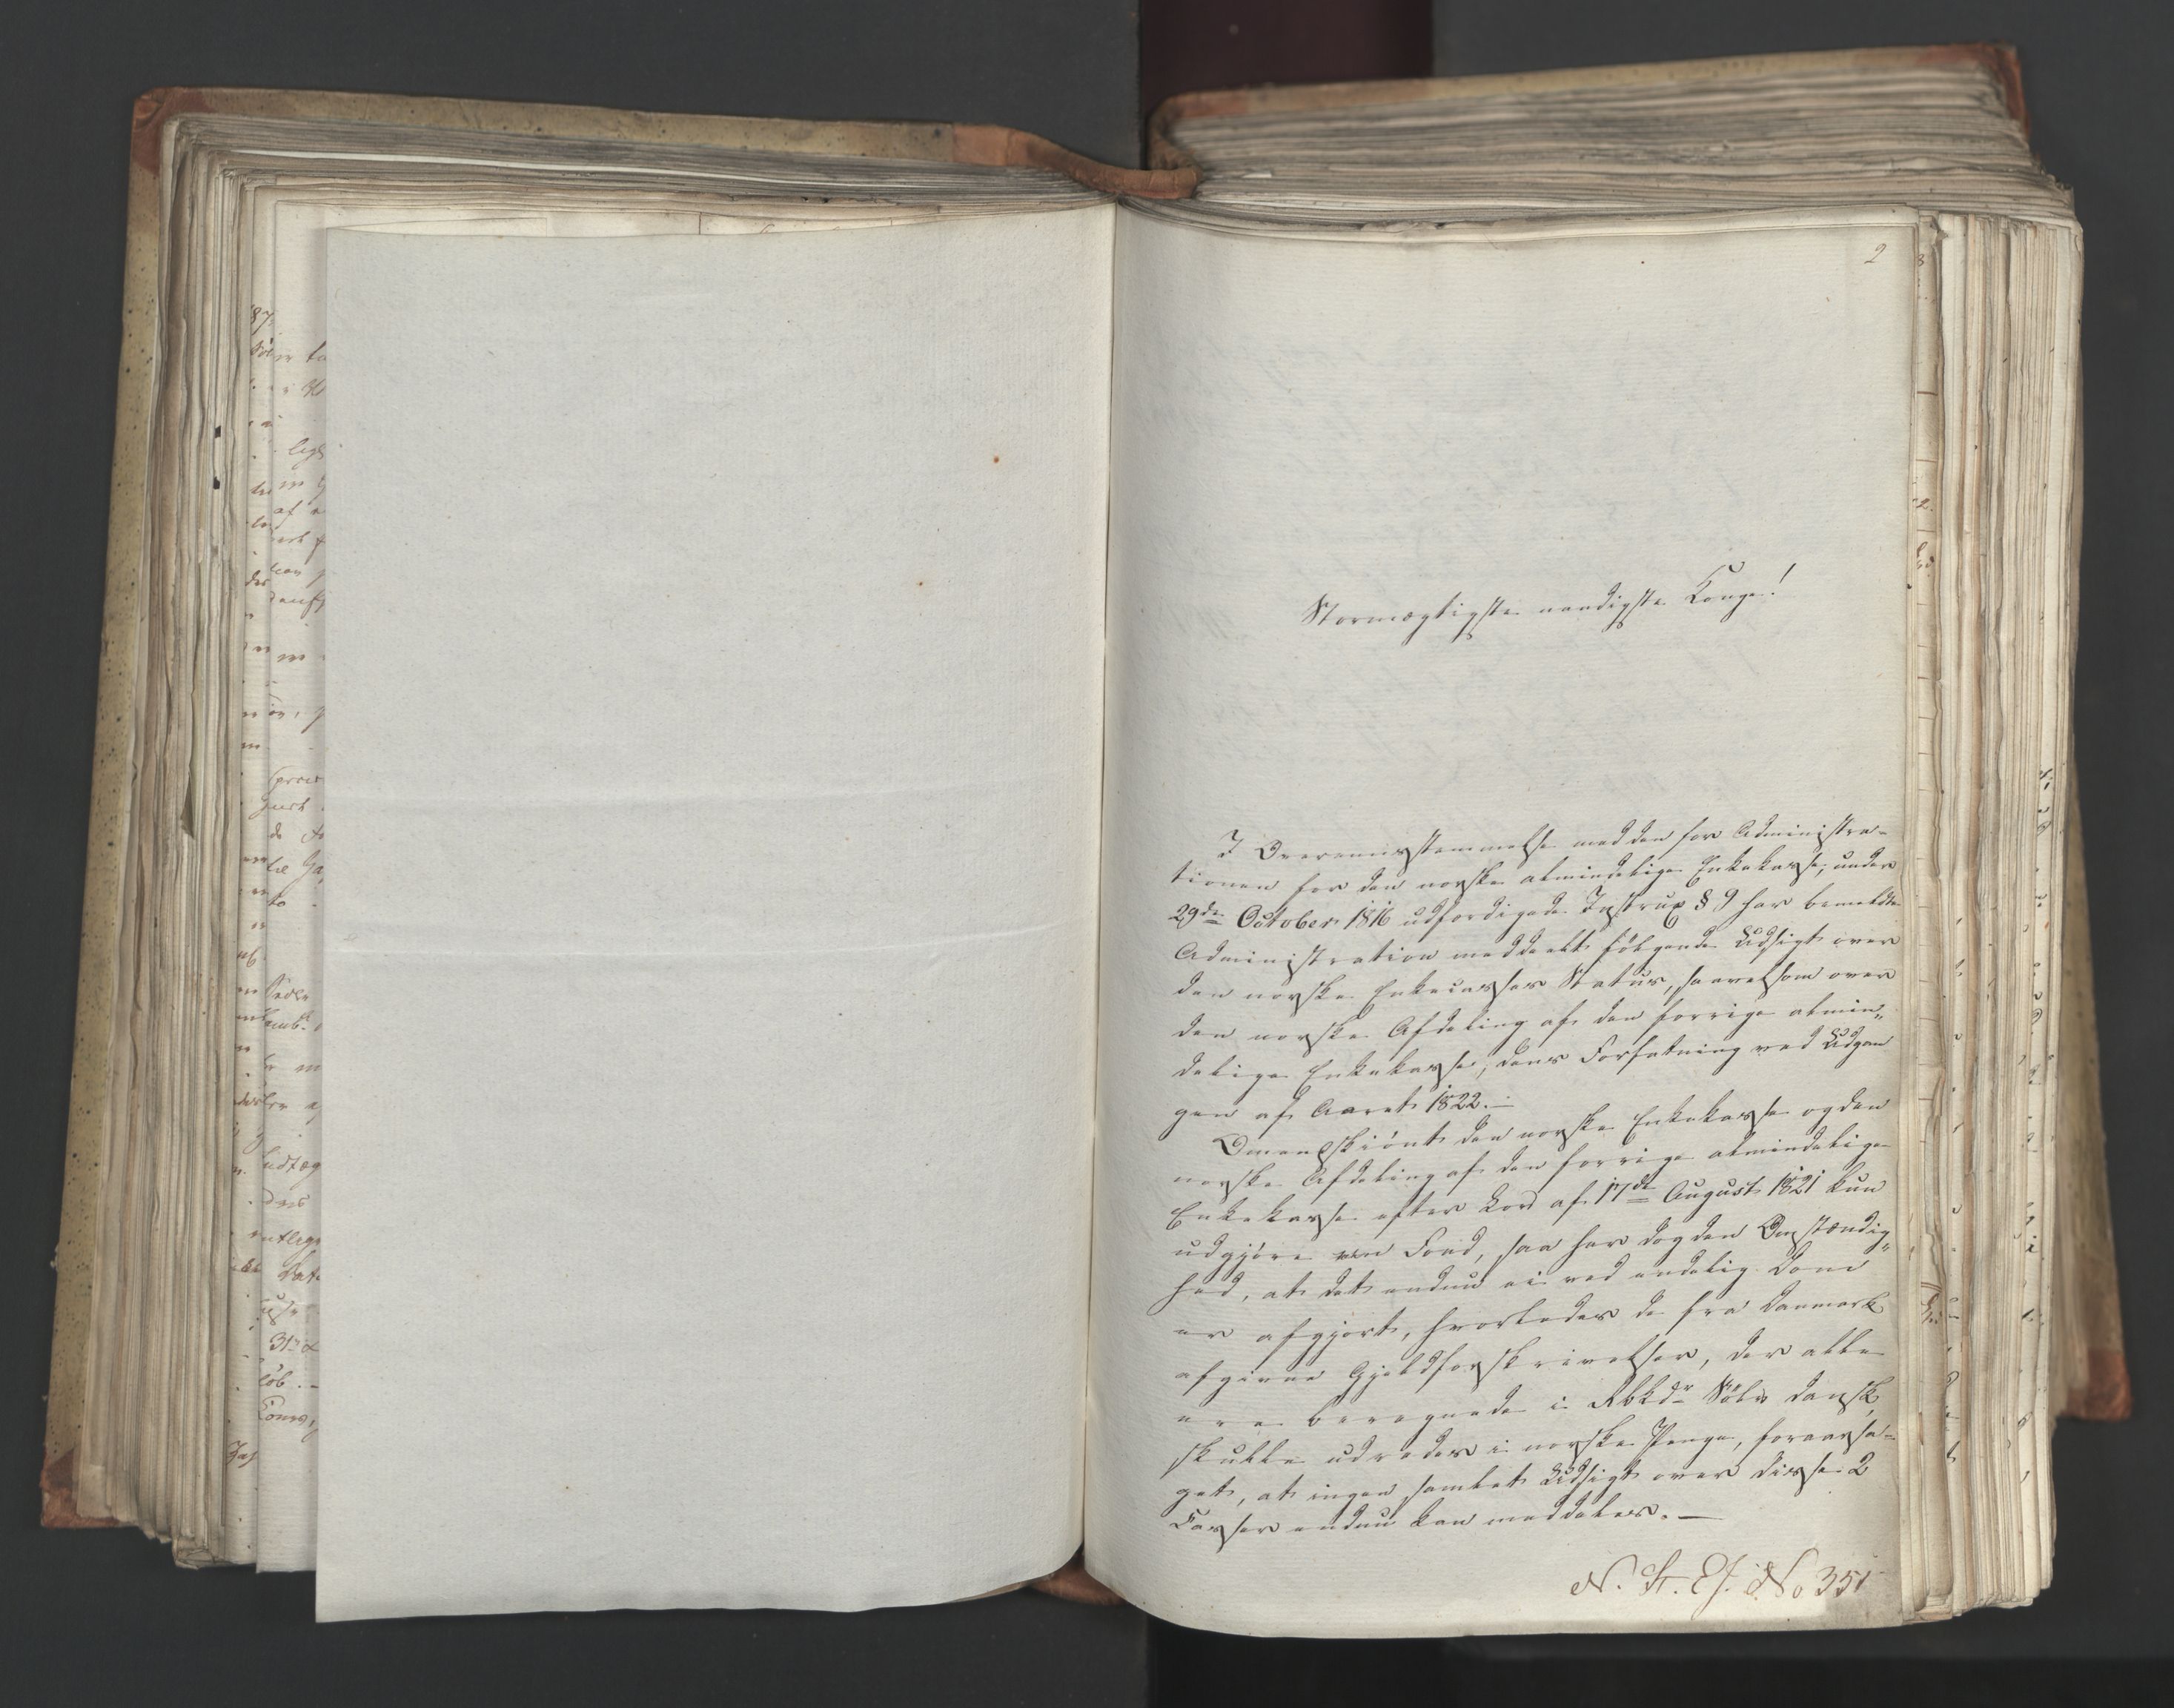 2
Stormægtigste naadigste Konge!
I Overeensstemmelse med den for Administra-
tionen for den norske almindelige Enkekasse, under
29de October 1816 udfærdigede Instrux § 9 har bemeldte
Administration meddeelt følgende Udsigt over
den norske Enkecasses Status, saavelsom over
den norske Afdeling af den forrige almin„
delige Enkekasse, dens Forfatning ved Udgan
gen af Aaret 1822.—
Omendskiönt den norske Enkekasse og den
norske Afdeling af den forrige almindelige
Enkekasse efter Lov af 17de August 1821 kun
udgjöre een Fond, saa har dog den Omstændig„
hed, at det endnu ei ved endelig Dom
er afgjort, hvorledes de fra Danmark
afgivne Gjeldsforskrivelser, der alle
ere beregnede i Rbkdr Sölv dansk,
skulle udredes i norske Penge, foraarsa-
get, at ingen samlet Udsigt over disse 2
Casser endnu kan meddeles.—
N. St. Ef. No 351